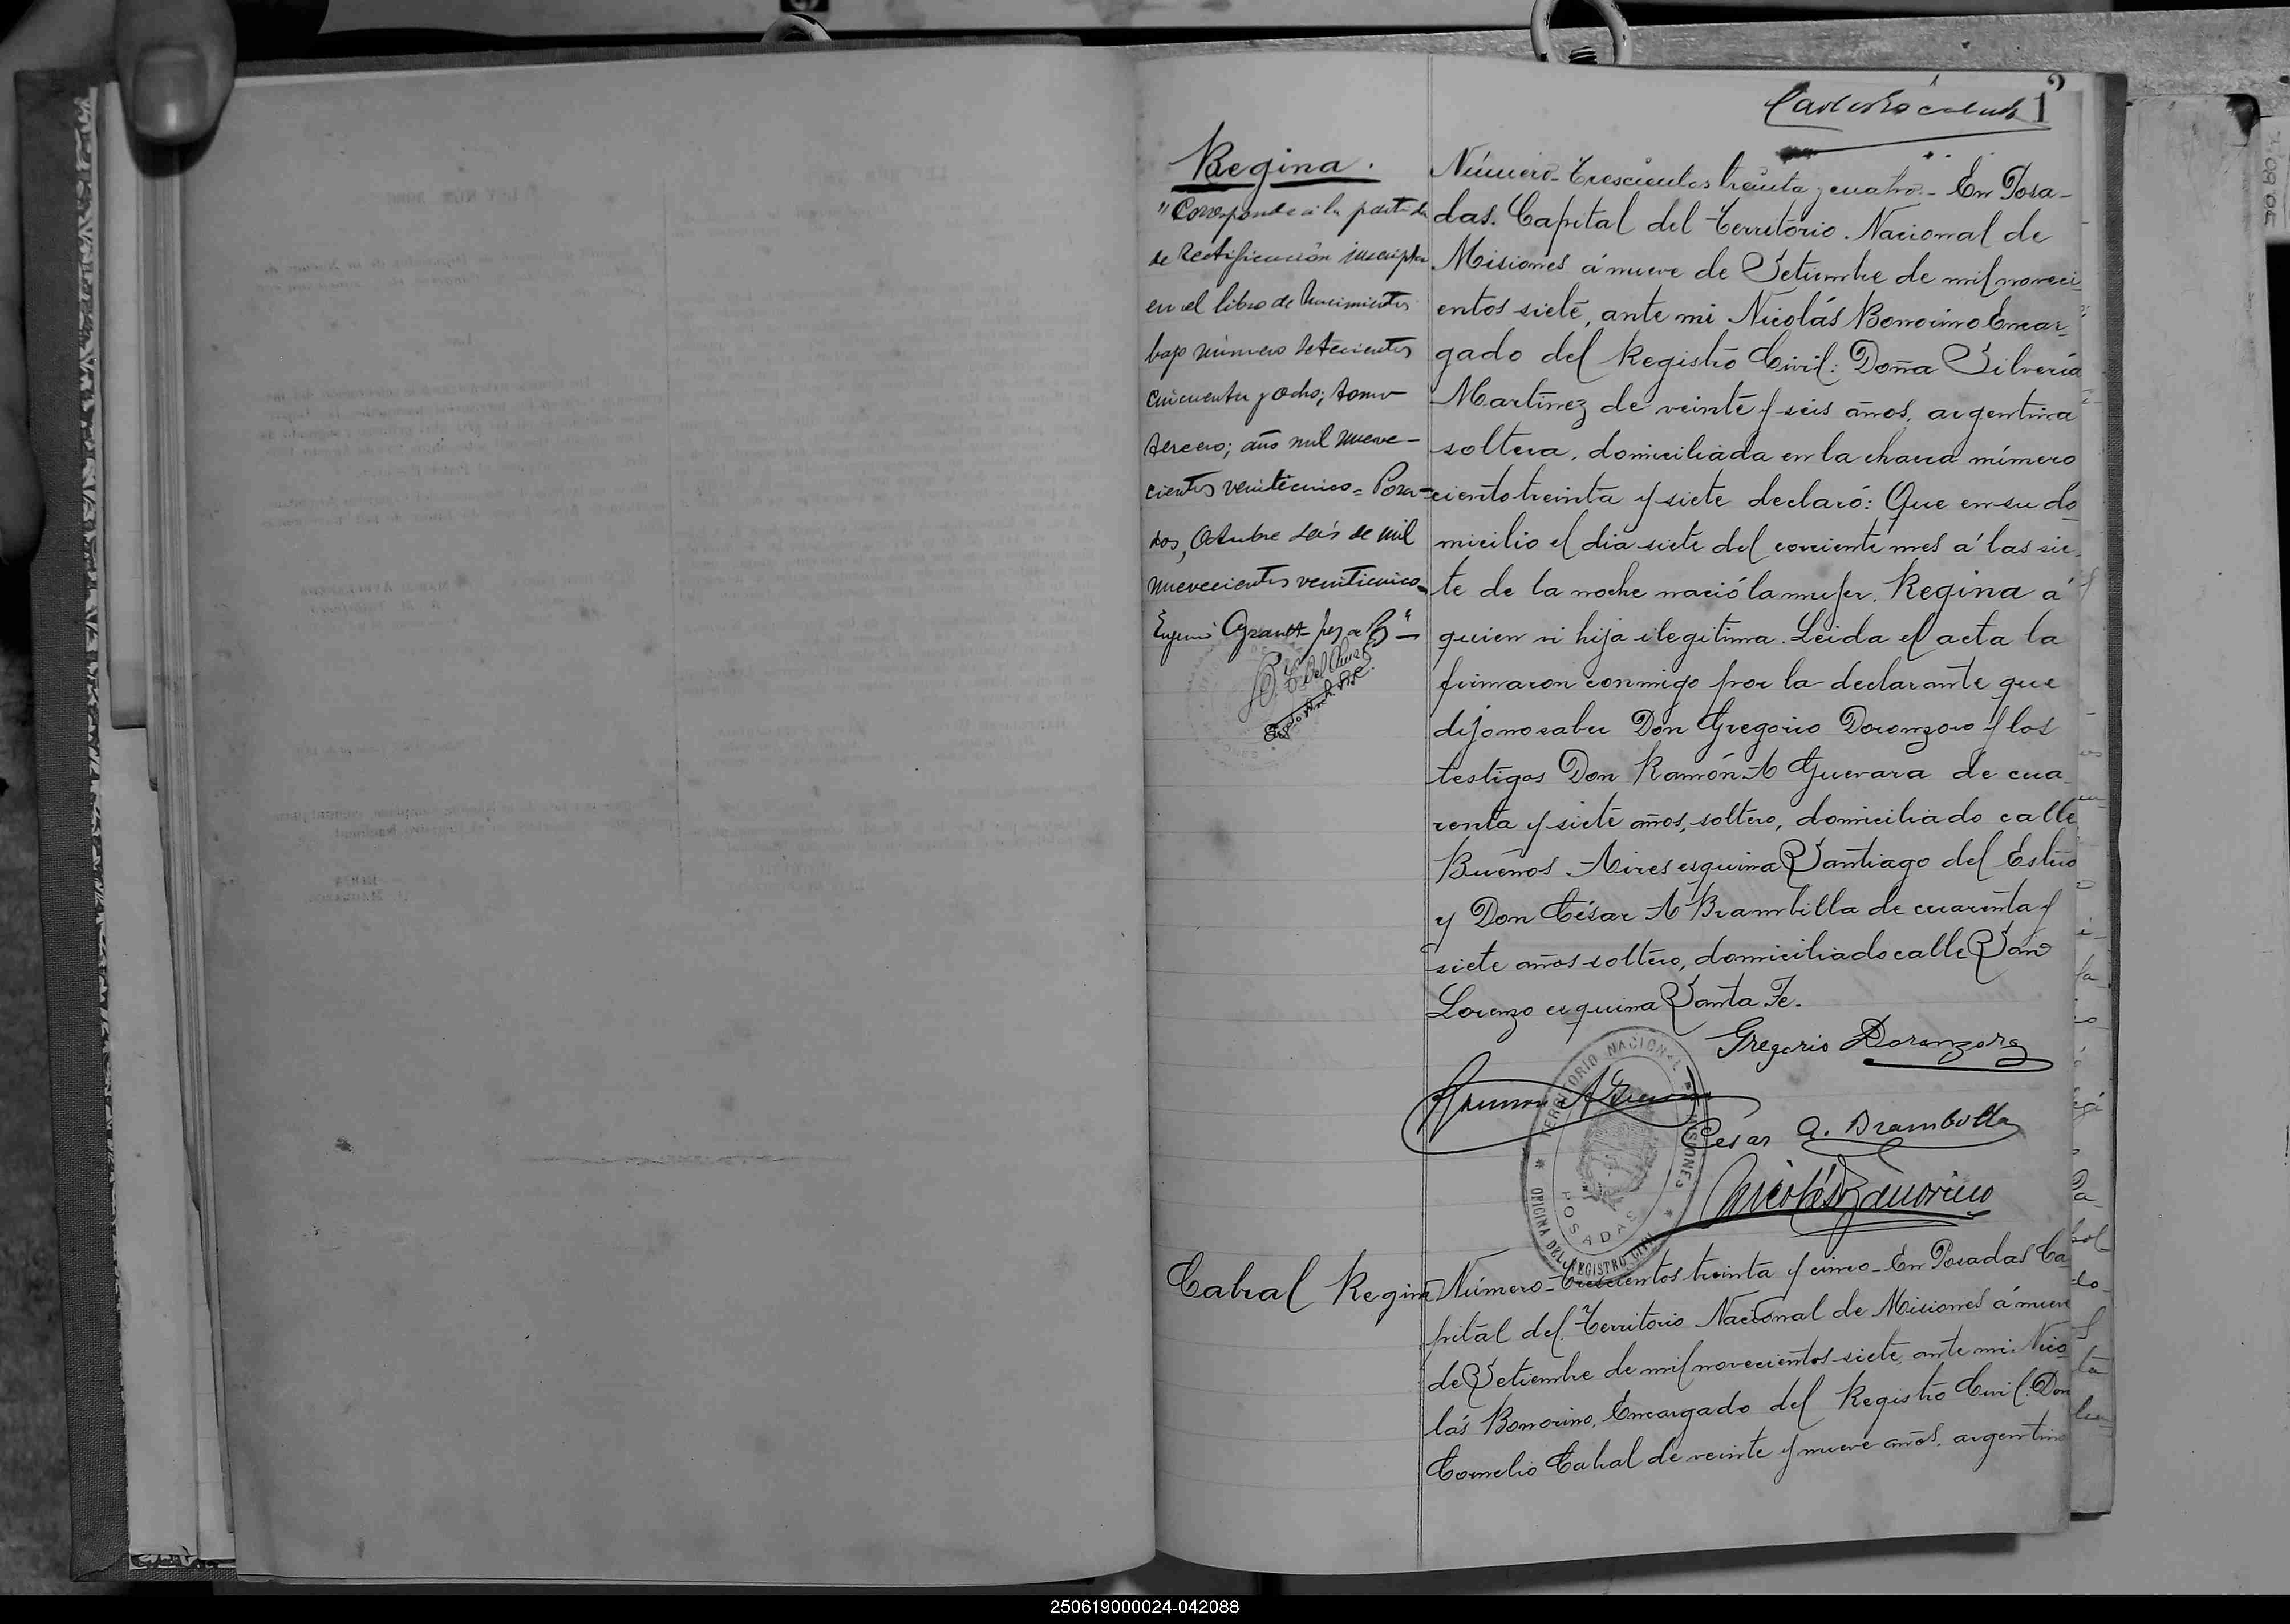 1
Regina.
"Corresponde a la partida
de rectificación inscripta
en el libro de Nacimientos
bajo número setecientos
cincuenta y ocho; tomo
tercero; año mil nueve-
cientos veinticinco = Posa-
das, Octubre seis de mil
nuevecientos veinticinco-
Número-Trescientos treinta y cuatro.- En Posa-
das. Capital del Territorio Nacional de
Misiones á nueve de Setiembre de mil noveci
entos siete, ante mi Nicolás Bonorino Encar-
gado del Registro Civil: Doña Silveria
Martínez de veinte y seis años, argentina
soltera, domiciliada en la chacra número
ciento treinta y siete declaró: Que en su do
micilio el dia siete del corriente mes á las sie-
te de la noche nació la mujer. Regina á
quien ni hija ilegitima. Leida el acta la
firmaron conmigo por la declarante que
dijo no saber Don Gregorio Doronzoro y los
testigos Don Ramón A Guevara de cua-
renta y siete años, soltero, domiciliado calle
Buenos Aires esquina Santiago del Estero
y Don César A Brambilla de cuarenta y
siete años soltero, domiciliado calle San
Lorenzo esquina Santa Fe.
Gregorio Doronzoro
Cesar A. Brambilla
Nicolás Bonorino
TERRITORIO NACIONAL * MISIONES *
POSADAS
OFICINA DEL REGISTRO CIVIL
Cabral Regina
Número-Trescientos treinta y cinco-En Posadas Ca
pital del Territorio Nacional de Misiones á nueve
de Setiembre de mil novecientos siete, ante mi Nico
lás Bonorino, Encargado del Registro Civil: Don
Cornelio Cabral de veinte y nueve años, argentino
250619000024-042088